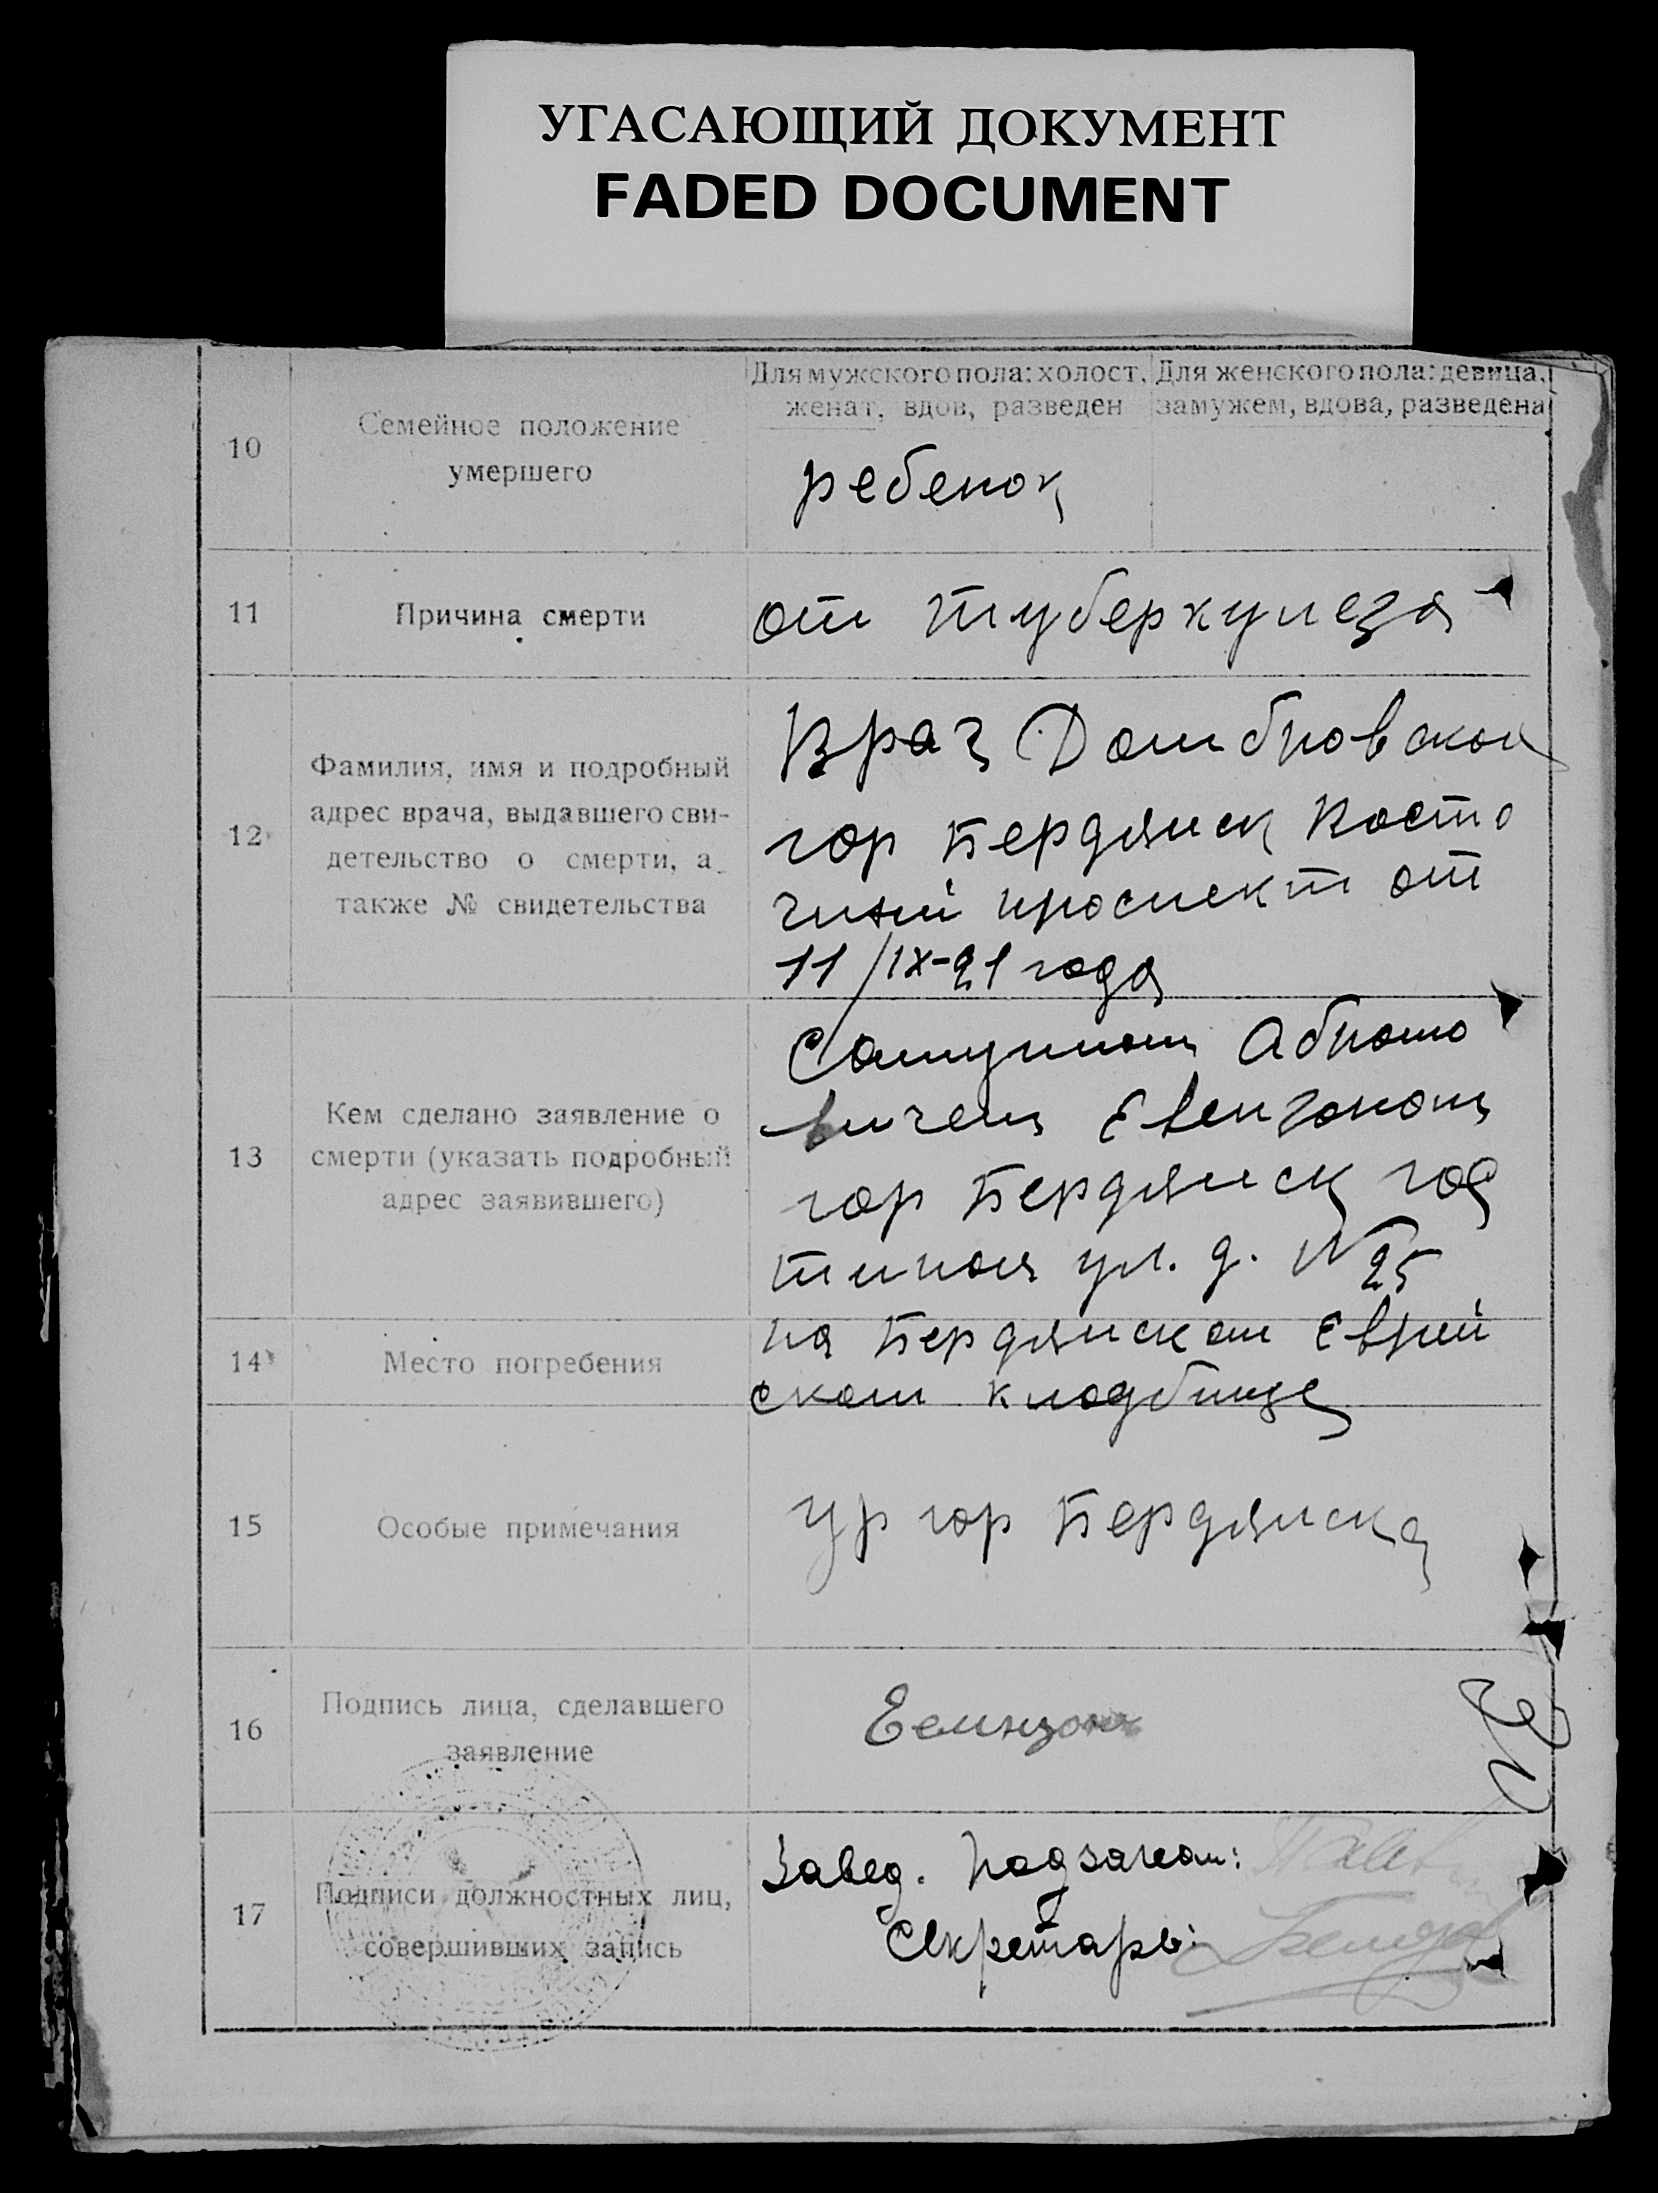 УГАСАЮЩИЙ ДОКУМЕНТ
FADED DOCUMENT
10
Семейное положение
умершего
Для мужского пола: холост,
женат, вдов, разведен
Для женского пола: девица,
замужем, вдова, разведена
ребенок
11
Причина смерти
от туберкулеза
12
Фамилия, имя и подробный
адрес врача, выдавшего сви-
детельство о смерти, а
также № свидетельства
Врач Домбровской
гор Бердянск Восто
чный проспект от
11/IX-21 года
13
Кем сделано заявление о
смерти (указать подробный
адрес заявившего)
Самуилом Абрамо
вичем
гор Бердянск гос
тиная ул. д. № 25
14
Место погребения
на Бердянском Еврей
ском кладбище
15
Особые примечания
гр гор Бердянска
16
Подпись лица, сделавшего
заявление
17
Подписи должностных лиц,
совершивших запись
Завед. Подзагсом:
Секретарь: